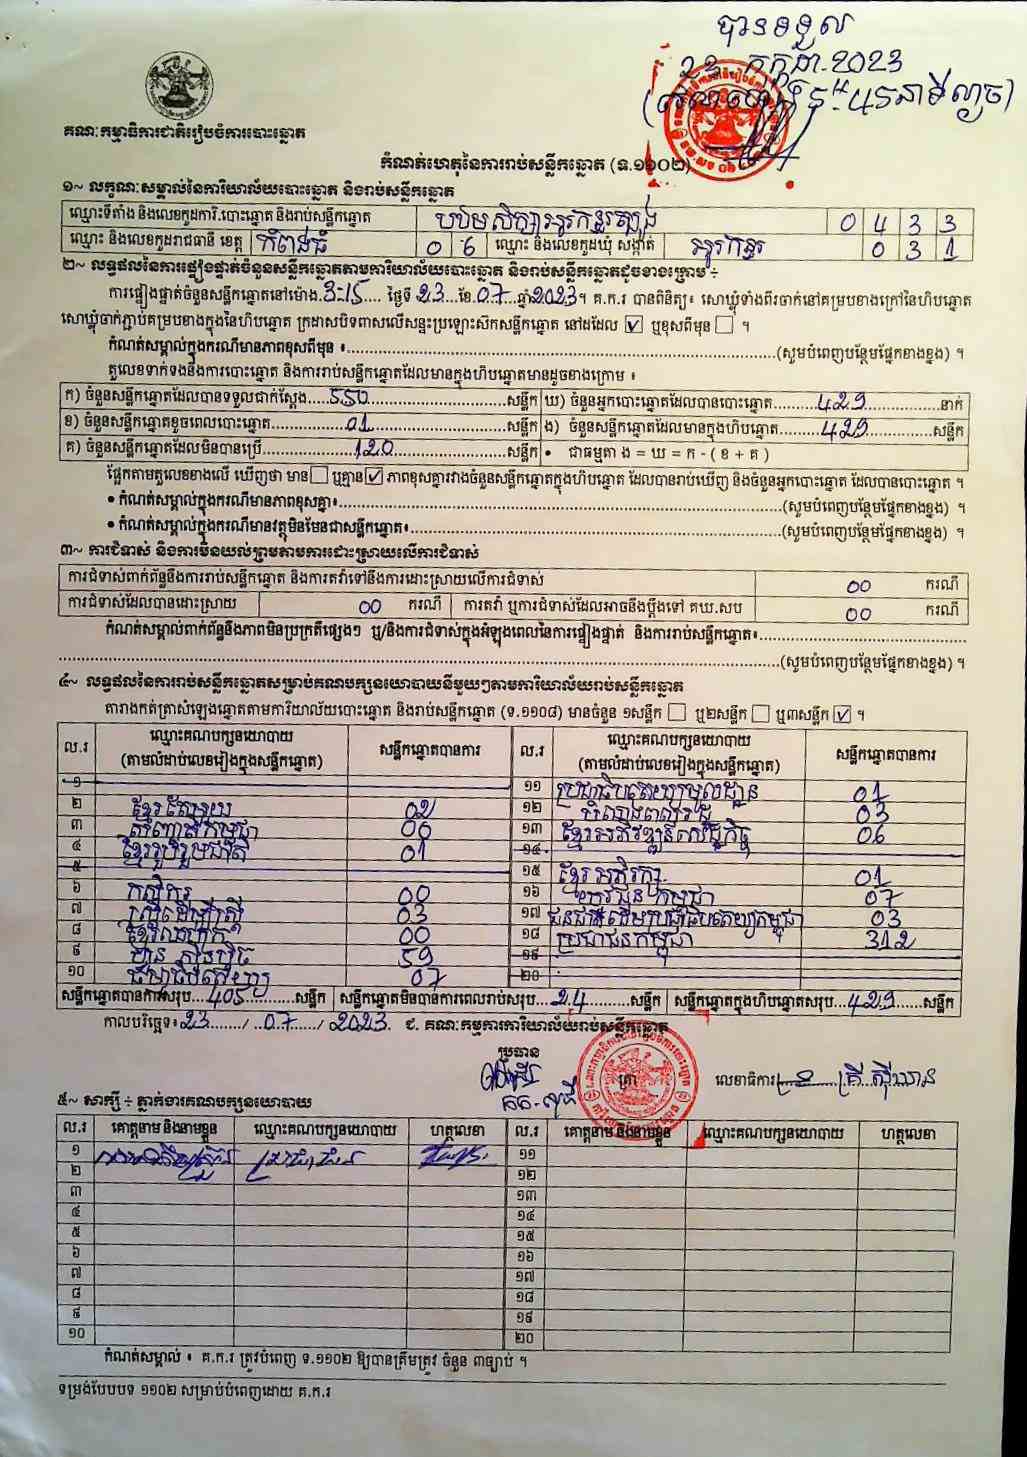 បានទទួល
23 កក្កដា.2023
គណៈកម្មាធិការជាតិរៀបចំការបោះឆ្នោត
កំណត់ហេតុនៃការរាប់សន្លឹកឆ្នោត (ទ.១១០២)
១~ លក្ខណៈសម្គាល់នៃការិយាល័យបោះឆ្នោត និងរាប់សន្លឹកឆ្នោត
ឈ្មោះទីតាំង និងលេខកូដការិ.បោះឆ្នោត និងរាប់សន្លឹកឆ្នោត 0 4 3 3
ឈ្មោះ និងលេខកូដរាជធានី ខេត្ត កំពង់ធំ 0 6 ឈ្មោះ និងលេខកូដឃុំ សង្កាត់ 0 3 1
២~ លទ្ធផលនៃការផ្ទៀងផ្ទាត់ចំនួនសន្លឹកឆ្នោតតាមការិយាល័យបោះឆ្នោត និងរាប់សន្លឹកឆ្នោតដូចខាងក្រោម ÷
ការផ្ទៀងផ្ទាត់ចំនួនសន្លឹកឆ្នោតនៅម៉ោង.3-15.... ថ្ងៃទី 23..ខែ.07...ឆ្នាំ2023។ គ.ក.រ បានពិនិត្យ៖ សោឃ្លុំទាំងពីរចាក់នៅគម្របខាងក្រៅនៃហិបឆ្នោត
សោឃ្លុំចាក់ភ្ជាប់គម្របខាងក្នុងនៃហិបឆ្នោត ក្រដាសបិទពាសលើសន្ទះប្រឡោះស៊កសន្លឹកឆ្នោត នៅដដែល ☑ ឬខុសពីមុន ☐ ។
កំណត់សម្គាល់ក្នុងករណីមានភាពខុសពីមុន ៖........(សូមបំពេញបន្ថែមផ្នែកខាងខ្នង) ។
តួលេខទាក់ទងនឹងការបោះឆ្នោត និងការរាប់សន្លឹកឆ្នោតដែលមានក្នុងហិបឆ្នោតមានដូចខាងក្រោម ៖
ក) ចំនួនសន្លឹកឆ្នោតដែលបានទទួលជាក់ស្តែង.....550........សន្លឹក ឃ) ចំនួនអ្នកបោះឆ្នោតដែលបានបោះឆ្នោត........429........នាក់
ខ) ចំនួនសន្លឹកឆ្នោតខូចពេលបោះឆ្នោត........01........សន្លឹក ង) ចំនួនសន្លឹកឆ្នោតដែលមានក្នុងហិបឆ្នោត........429........សន្លឹក
គ) ចំនួនសន្លឹកឆ្នោតដែលមិនបានប្រើ........120........សន្លឹក • ជាធម្មតា ង = ឃ = ក - ( ខ + គ )
ផ្អែកតាមតួលេខខាងលើ ឃើញថា មាន ☐ ឬគ្មាន ☑ ភាពខុសគ្នារវាងចំនួនសន្លឹកឆ្នោតក្នុងហិបឆ្នោត ដែលបានរាប់ឃើញ និងចំនួនអ្នកបោះឆ្នោត ដែលបានបោះឆ្នោត ។
• កំណត់សម្គាល់ក្នុងករណីមានភាពខុសគ្នា៖........(សូមបំពេញបន្ថែមផ្នែកខាងខ្នង) ។
• កំណត់សម្គាល់ក្នុងករណីមានវត្ថុមិនមែនជាសន្លឹកឆ្នោត៖........(សូមបំពេញបន្ថែមផ្នែកខាងខ្នង) ។
៣~ ការជំទាស់ និងការមិនយល់ព្រមតាមការដោះស្រាយលើការជំទាស់
ការជំទាស់ពាក់ព័ន្ធនឹងការរាប់សន្លឹកឆ្នោត និងការតវ៉ាទៅនឹងការដោះស្រាយលើការជំទាស់ 00 ករណី
ការជំទាស់ដែលបានដោះស្រាយ 00 ករណី ការតវ៉ា ឬការជំទាស់ដែលអាចនឹងប្តឹងទៅ គឃ.សប 00 ករណី
កំណត់សម្គាល់ពាក់ព័ន្ធនឹងភាពមិនប្រក្រតីផ្សេងៗ ឬ/និងការជំទាស់ក្នុងអំឡុងពេលនៃការផ្ទៀងផ្ទាត់ និងការរាប់សន្លឹកឆ្នោត៖........
........(សូមបំពេញបន្ថែមផ្នែកខាងខ្នង) ។
៤~ លទ្ធផលនៃការរាប់សន្លឹកឆ្នោតសម្រាប់គណបក្សនយោបាយនីមួយៗតាមការិយាល័យរាប់សន្លឹកឆ្នោត
តារាងកត់ត្រាសំឡេងឆ្នោតតាមការិយាល័យបោះឆ្នោត និងរាប់សន្លឹកឆ្នោត (ទ.១១០៨) មានចំនួន ១សន្លឹក ☐ ឬ២សន្លឹក ☐ ឬ៣សន្លឹក ☑ ។
ល.រ ឈ្មោះគណបក្សនយោបាយ (តាមលំដាប់លេខរៀងក្នុងសន្លឹកឆ្នោត) សន្លឹកឆ្នោតបានការ ល.រ ឈ្មោះគណបក្សនយោបាយ (តាមលំដាប់លេខរៀងក្នុងសន្លឹកឆ្នោត) សន្លឹកឆ្នោតបានការ
១ ១១ ប្រជាធិបតេយ្យមូលដ្ឋាន 01
២ ខ្មែរតែមួយ 02 ១២ 03
៣ 00 ១៣ ខ្មែរអភិវឌ្ឍន៍សេដ្ឋកិច្ច 06
៤ ខ្មែររួបរួមជាតិ 01 ១៤
៥ ១៥ ខ្មែរអភិរក្ស 01
៦ កសិករ 00 ១៦ យុវជនកម្ពុជា 07
៧ ស្ត្រីដើម្បីស្ត្រី 03 ១៧ ជនជាតិដើមប្រជាធិបតេយ្យកម្ពុជា 03
៨ 00 ១៨ ប្រជាជនកម្ពុជា 312
៩ ហ៊្វុនស៊ិនប៉ិច 59 ១៩
១០ ធម្មាធិបតេយ្យ 07 ២០
សន្លឹកឆ្នោតបានការសរុប...405........សន្លឹក សន្លឹកឆ្នោតមិនបានការពេលរាប់សរុប...24........សន្លឹក សន្លឹកឆ្នោតក្នុងហិបឆ្នោតសរុប...429......សន្លឹក
កាលបរិច្ឆេទ៖23......./..07...../ 2023. ជ. គណៈកម្មការការិយាល័យរាប់សន្លឹកឆ្នោត
ប្រធាន
ត្រា
លេខាធិការ
៥~ សាក្សី ÷ ភ្នាក់ងារគណបក្សនយោបាយ
ល.រ គោត្តនាម និងនាមខ្លួន ឈ្មោះគណបក្សនយោបាយ ហត្ថលេខា ល.រ គោត្តនាម និងនាមខ្លួន ឈ្មោះគណបក្សនយោបាយ ហត្ថលេខា
១ ១១
២ ១២
៣ ១៣
៤ ១៤
៥ ១៥
៦ ១៦
៧ ១៧
៨ ១៨
៩ ១៩
១០ ២០
កំណត់សម្គាល់ ៖ គ.ក.រ ត្រូវបំពេញ ទ.១១០២ ឱ្យបានត្រឹមត្រូវ ចំនួន ៣ច្បាប់ ។
ទម្រង់បែបបទ ១១០២ សម្រាប់បំពេញដោយ គ.ក.រ